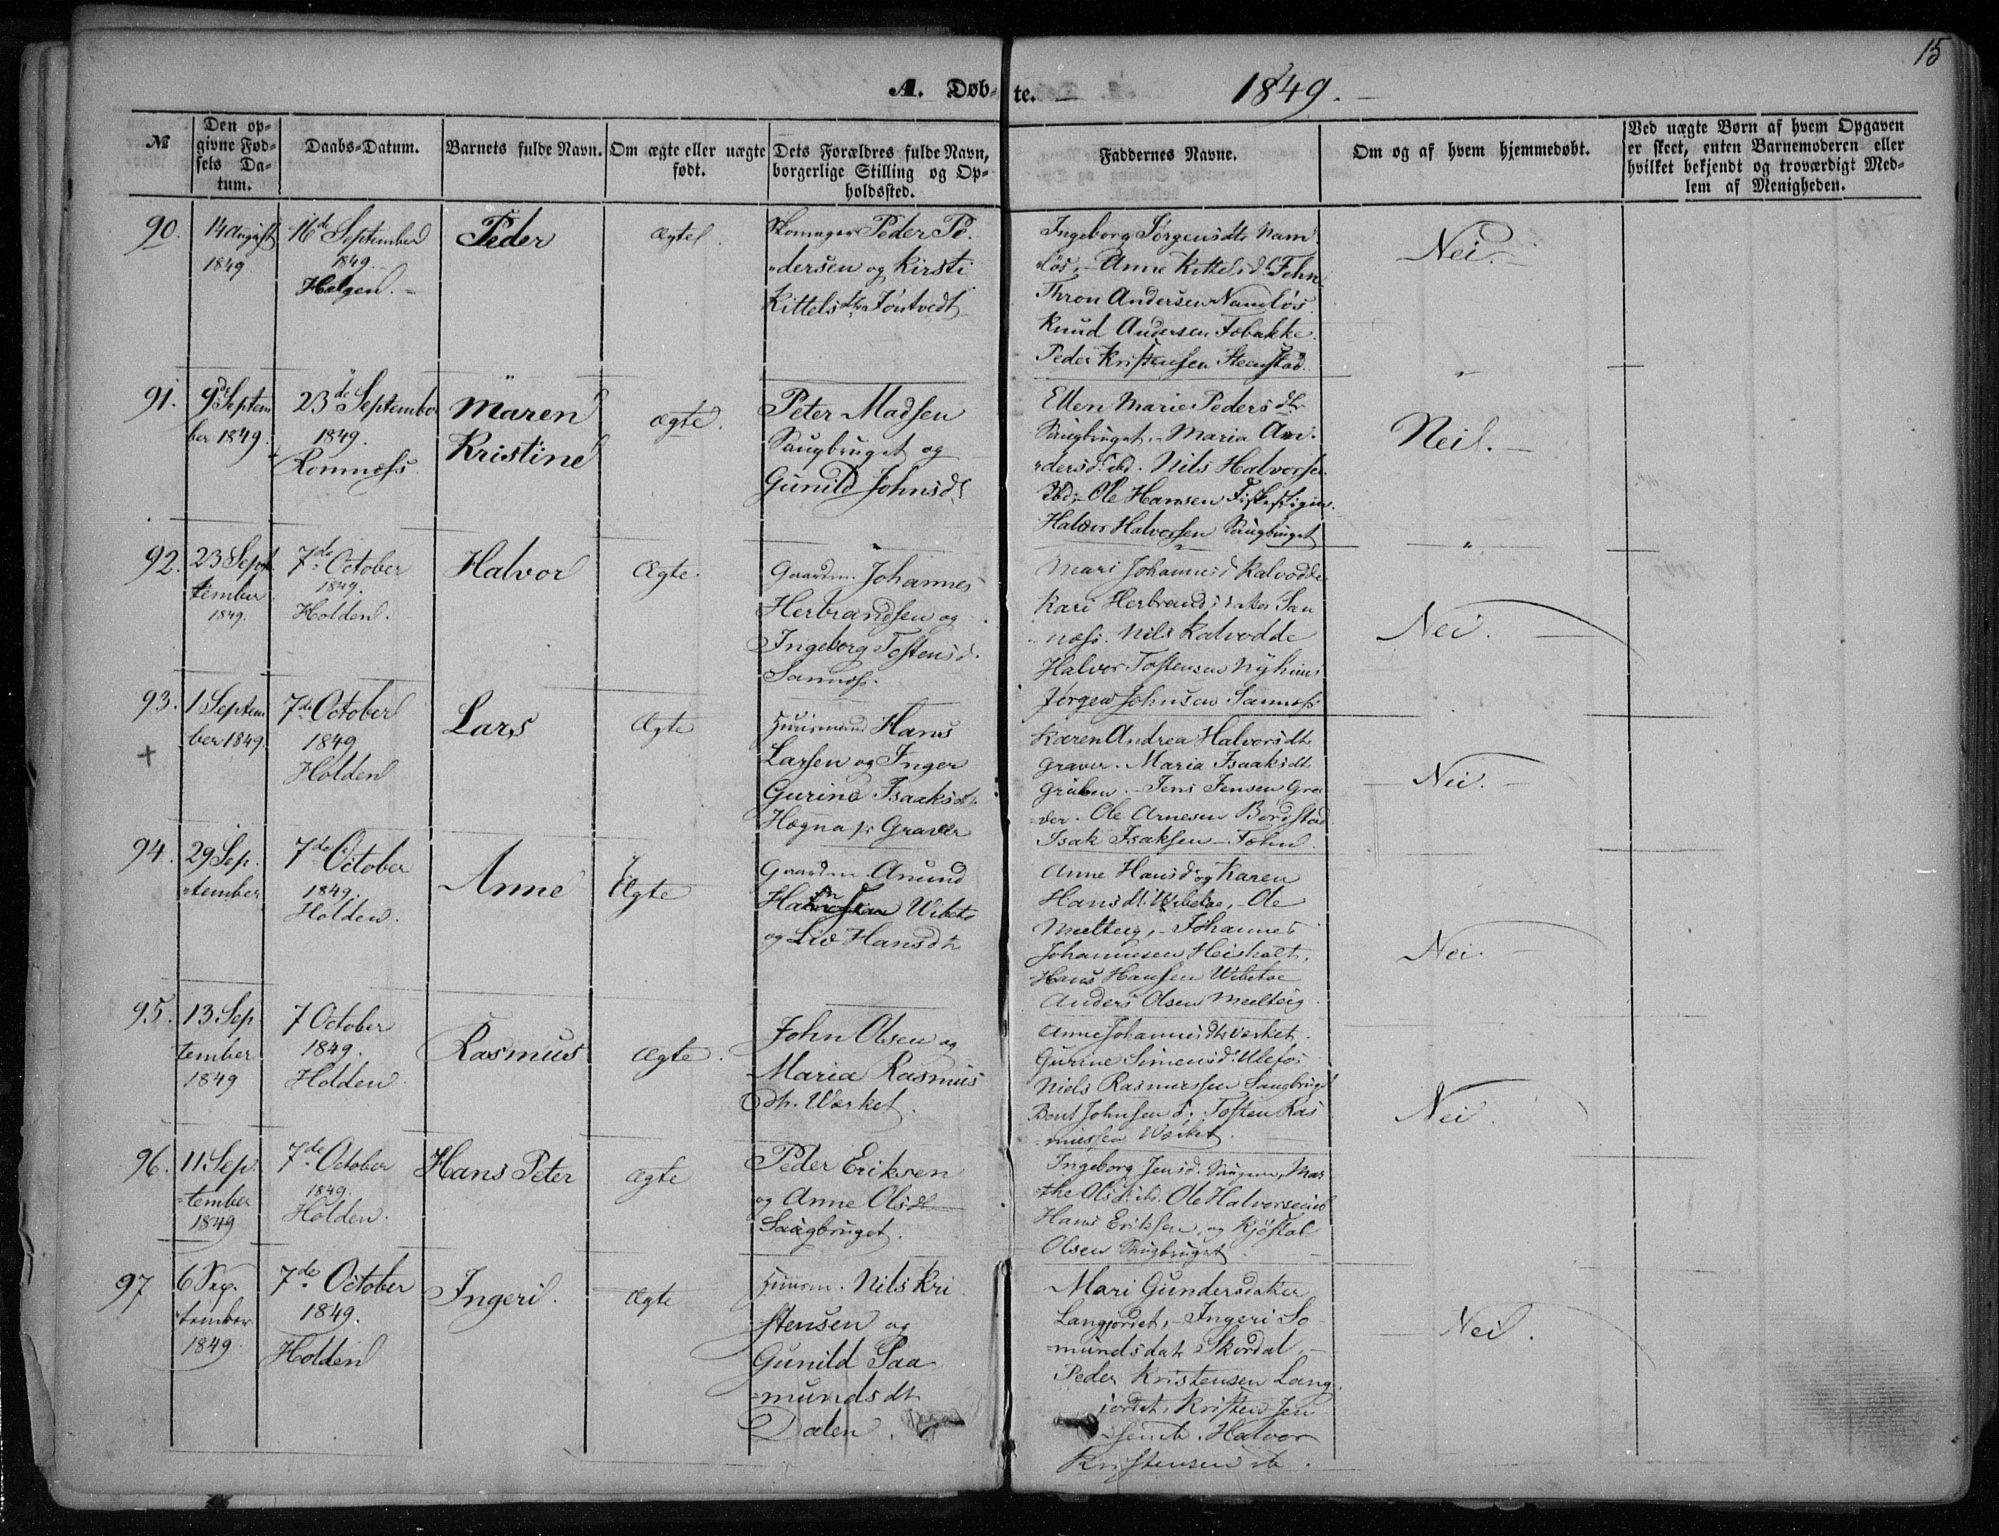 15
A. Døb- te. 1849.
№
Den op-
givne Fød-
sels Da-
tum.
Daabs-Datum.
Barnets fulde Navn.
Om ægte eller uægte
født.
Dets Forældres fulde Navn,
borgerlige Stilling og Op-
holdssted.
Faddernes Navne.
Om og af hvem hjemmedøbt.
Ved uægte Børn af hvem Opgaven
er skeet, enten Barnemoderen eller
hvilket bekjendt og troværdigt Med-
lem af Menigheden.
90.
14 August
1849
16de September
1849.
Helgen.
Peder
Ægte
Skomager Peder Pe-
dersen og Kirsti
Kittelsdtr Tøntvedt
Ingeborg Jørgensdtr Nam
løs, - Anne Kittelsd. Fehn
Thron Andersen Namløs
Knud Andersen Tobakke
Peder Kristensen Steenstad.
Nei.
91.
9de Septem
ber 1849.
23de September
1849.
Romnæss
Maren
Kristine
Ægte.
Peter Madsen
Saugbruget og
Gunild Johnsdt
Ellen Marie Pedersdtr
Saugbruget, - Maria An-
dersd. ibd. Nils Halvorsen
Ibd; Ole Hansen
Halvor Halvorsen Saugbruget
Nei.
92.
23 Sept
tember
1849.
7de October
1849.
Holden.
Halvor
Ægte.
Gaardm. Johannes
Herbrandsen og
Ingeborg Tostensd.
Sannæss.
Mari Johannesd Kalvodde
Kari Herbrandsdatter San
næss. Nils Kalvodde
Halvor Tostensen Nyhuus
Jørgen Johnsen Sannæss
Nei.
93.
+
1 Septem
ber 1849.
7de October
1849
Holden
Lars
Ægte
Huusmand Hans
Larsen og Inger
Gurine Isaaksdtr
Høgna p: Graver
Karen Andrea Halvorsdtr
Graver. Maria Isaaksdt
Gruben. - Jens Jensen Gra
ver. Ole Arnesen Borgstad
Isak Isaksen - Fæhn
Nei.
94.
29 Sep.
tember
7de October
1849.
Holden.
Anne
Ægte
Gaardm. Anund
Wibeto
og Liv Hansdtr
Anne Hansd og Karen
Hansdt. Wibetoe, - Ole
Melteig, - Johannes
Johannesen Heisholt,
Hans Hansen Wibetoe
Anders Olsen Melteig
Nei.
95.
13 Sep
tember
1849
7 October
1849.
Holden.
Rasmus
Ægte.
John Olsen og
Maria Rasmus
dtr. Værket.
Anne Johannesdtr Værket.
Gurine Simensd. Ulefos
Niels Rasmussen Saugbruget
Bent Johnsen d. Tosten Ras
mussen Værket.
Nei.
96.
11 Sep.
tember
1849
7de October
1849.
Holden.
Hans Peter
Ægte
Peder Eriksen
og Anne Olsdt
Saugbruget.
Ingeborg Jensd. Saugbr. Mar
the Olsd. ibd. Ole Halvorsen ib
Hans Eriksen, og Kjøstal
Olsen Saugbruget
97
6 Sep.
tember
1849.
7de October
1849.
Holden
Ingeri.
Ægte
Huusm. Nils Kri
stensen og
Gunild Saa
mundsdt
Dalen.
Mari Gundersdatter
Langjordet, - Ingeri So
mundsdatr Skordal, -
Peder Kristensen Lang
jordet, Kristen Jen
sen ib. Halvor
Kristensen ib.
Nei.